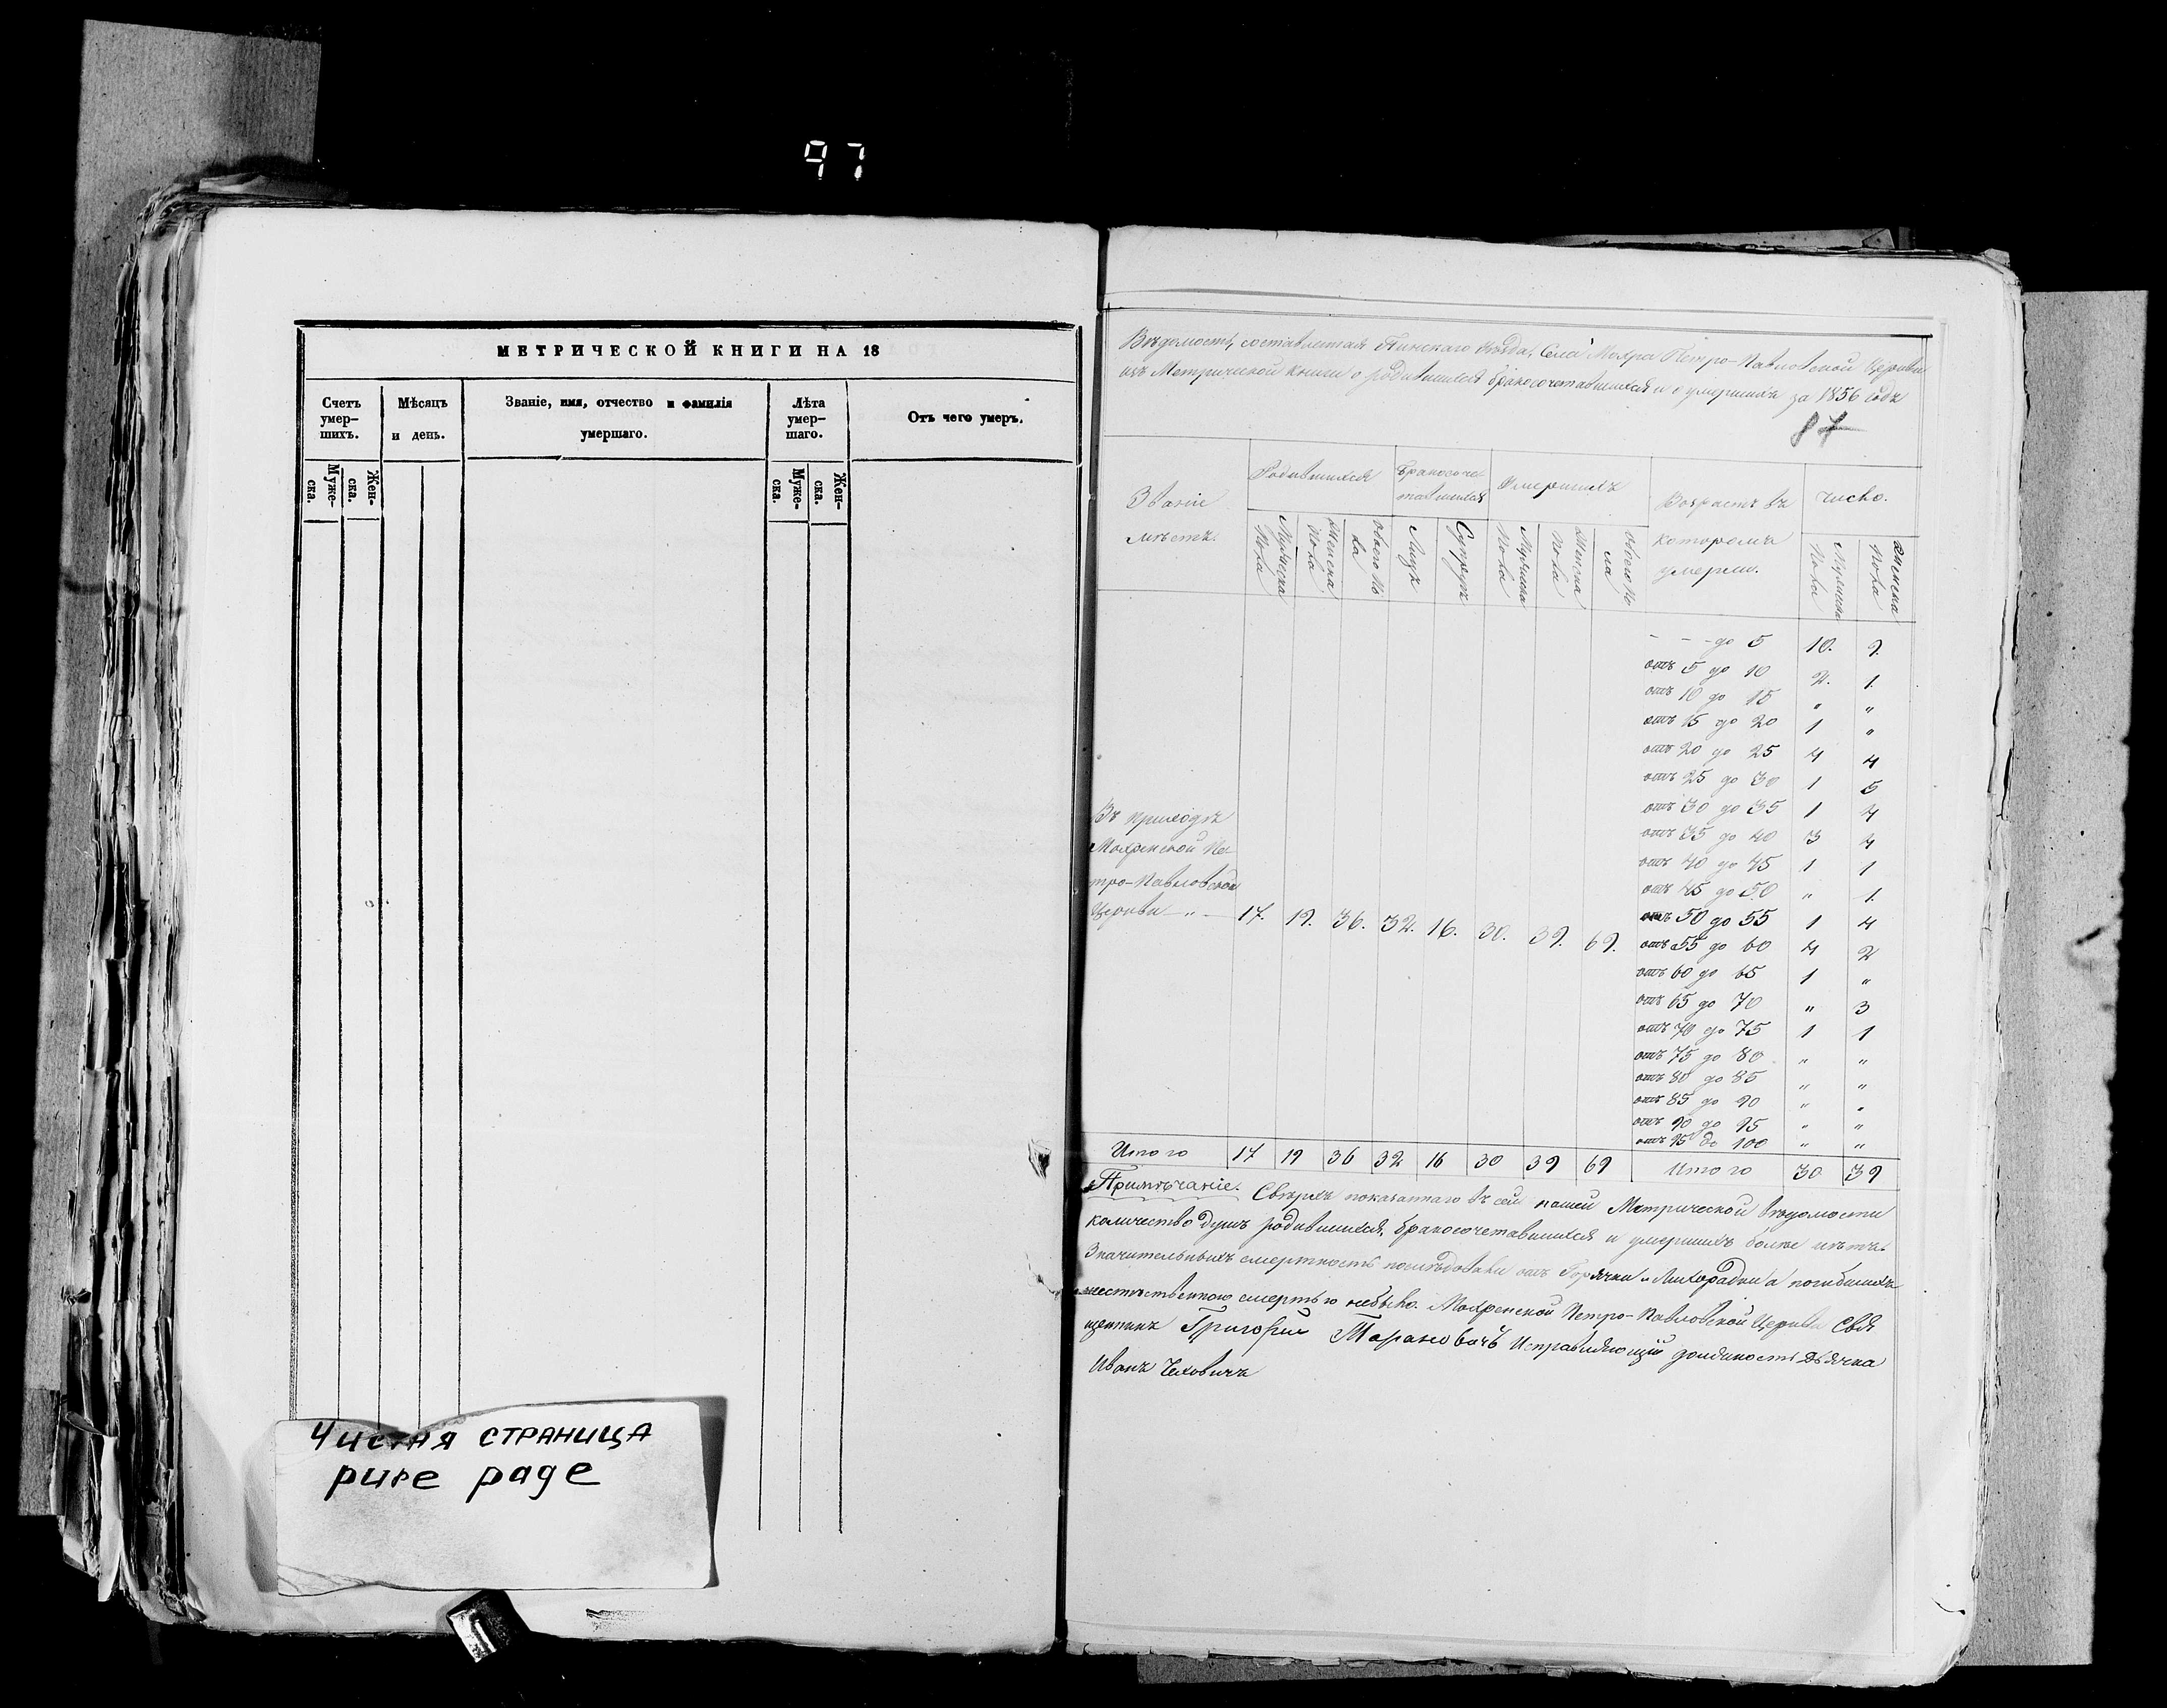 97
МЕТРИЧЕСКОЙ КНИГИ НА 18
Счетъ умер-шихъ.
Мѣсяцъ и день.
Званіе, имя, отчество и фамилія умершаго.
Лѣта умер-шаго.
Отъ чего умеръ.
Муже-ска.
Жен-ска.
Муже-ска.
Жен-ска.
Чистая страница
pure page
Вѣдомость, составленная Пинскаго Уѣзда, Села Мохра Петро-Павловской Церкви
изъ Метрической Книги о родившихся бракосочетавшихся и о умершихъ за 1856 Годъ
87
Званіе мѣстъ.
Родившихся
Бракосоче-тавшихся
Умершихъ
Возрастъ въ которомъ умерли.
Число.
Мужеска Пола
Женска Пола
Обоего По ла
Лицъ
Супруж
Мужеска Пола
Женска Пола
Обоего По ла
Мужеска Пола
Женска Пола
- - - до 5 10. 9.
отъ 5 до 10 2. 1.
отъ 10 до 15 " "
отъ 15 до 20 1 "
отъ 20 до 25 4 4
отъ 25 до 30 1 5
отъ 30 до 35 1 4
отъ 35 до 40 3 4
отъ 40 до 45 1 1
отъ 45 до 50 " 1.
отъ 50 до 55 1 4
отъ 55 до 60 4 2
отъ 60 до 65 1 "
отъ 65 до 70 " 3
отъ 70 до 75 1 1
отъ 75 до 80 " "
отъ 80 до 85 " "
отъ 85 до 90 " "
отъ 90 до 95 " "
отъ 95 до 100 " "
Въ приходѣ
Мохренской Пе-
тро-Павловской
Церкви - " - 17. 19. 36. 32. 16. 30. 39. 69.
Итого 17 19 36 32 16 30 39 69 Итого 30 39
Примѣчаніе. Сверхъ показаннаго въ сей нашей Метрической вѣдомости
количество душъ родившихся, бракосочетавшихся и умершихъ болѣе нѣтъ.
Значительныхъ смертность послѣдовали отъ Горячки и Лихорадки а погибшихъ
неестественною смертью небыло. Мохренской Петро-Павловской Церкви Свя
щенникъ Григорій Тарановичъ Исправляющій должность Дьячка
Иванъ Чеховичъ